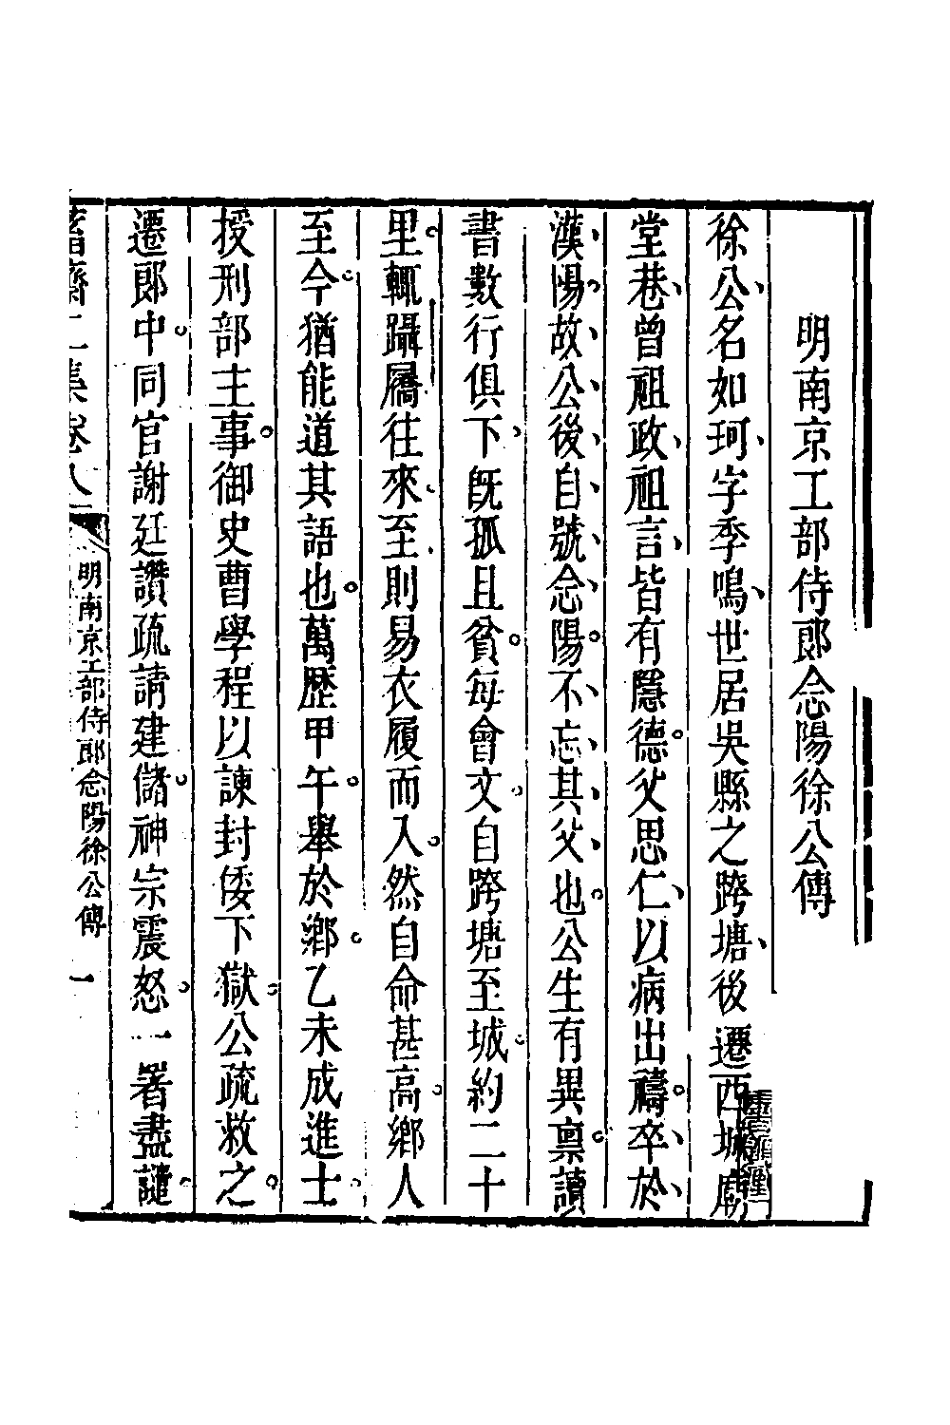 明南京工部侍郎念陽徐公傳
徐公名如珂字季鳴世居吳縣之跨塘後遷西城廟
堂巷曾祖政祖言皆有隱德父思仁以病出禱卒於
漢陽故公後自號念陽不忘其父也公生有異稟讀
書數行俱下既孤且貧每會文自跨塘至城約二十
里輒躡屩往來至則易衣履而入然自命甚高鄉人
至今猶能道其語也萬歷甲午舉於鄉乙未成進士
授刑部主事御史曹學程以諫封倭下獄公疏救之
遷郎中同官謝廷讚疏請建儲神宗震怒一署盡譴
齋二集卷八 明南京工部侍郎念陽徐公傳 一